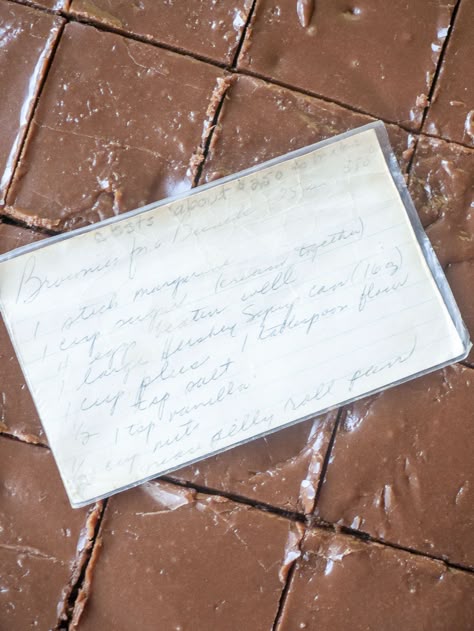 Costs about $2.50 to make
Brownies for a Bunch 25 min 350
1 stick margarine
1 cup sugar (cream together)
4 eggs beaten well
1 large Hershey Syrup can (16 oz)
1 cup plus 1 tablespoon flour
1/2 tsp salt
1 tsp vanilla
1/2 cup nuts
Grease jelly roll pan